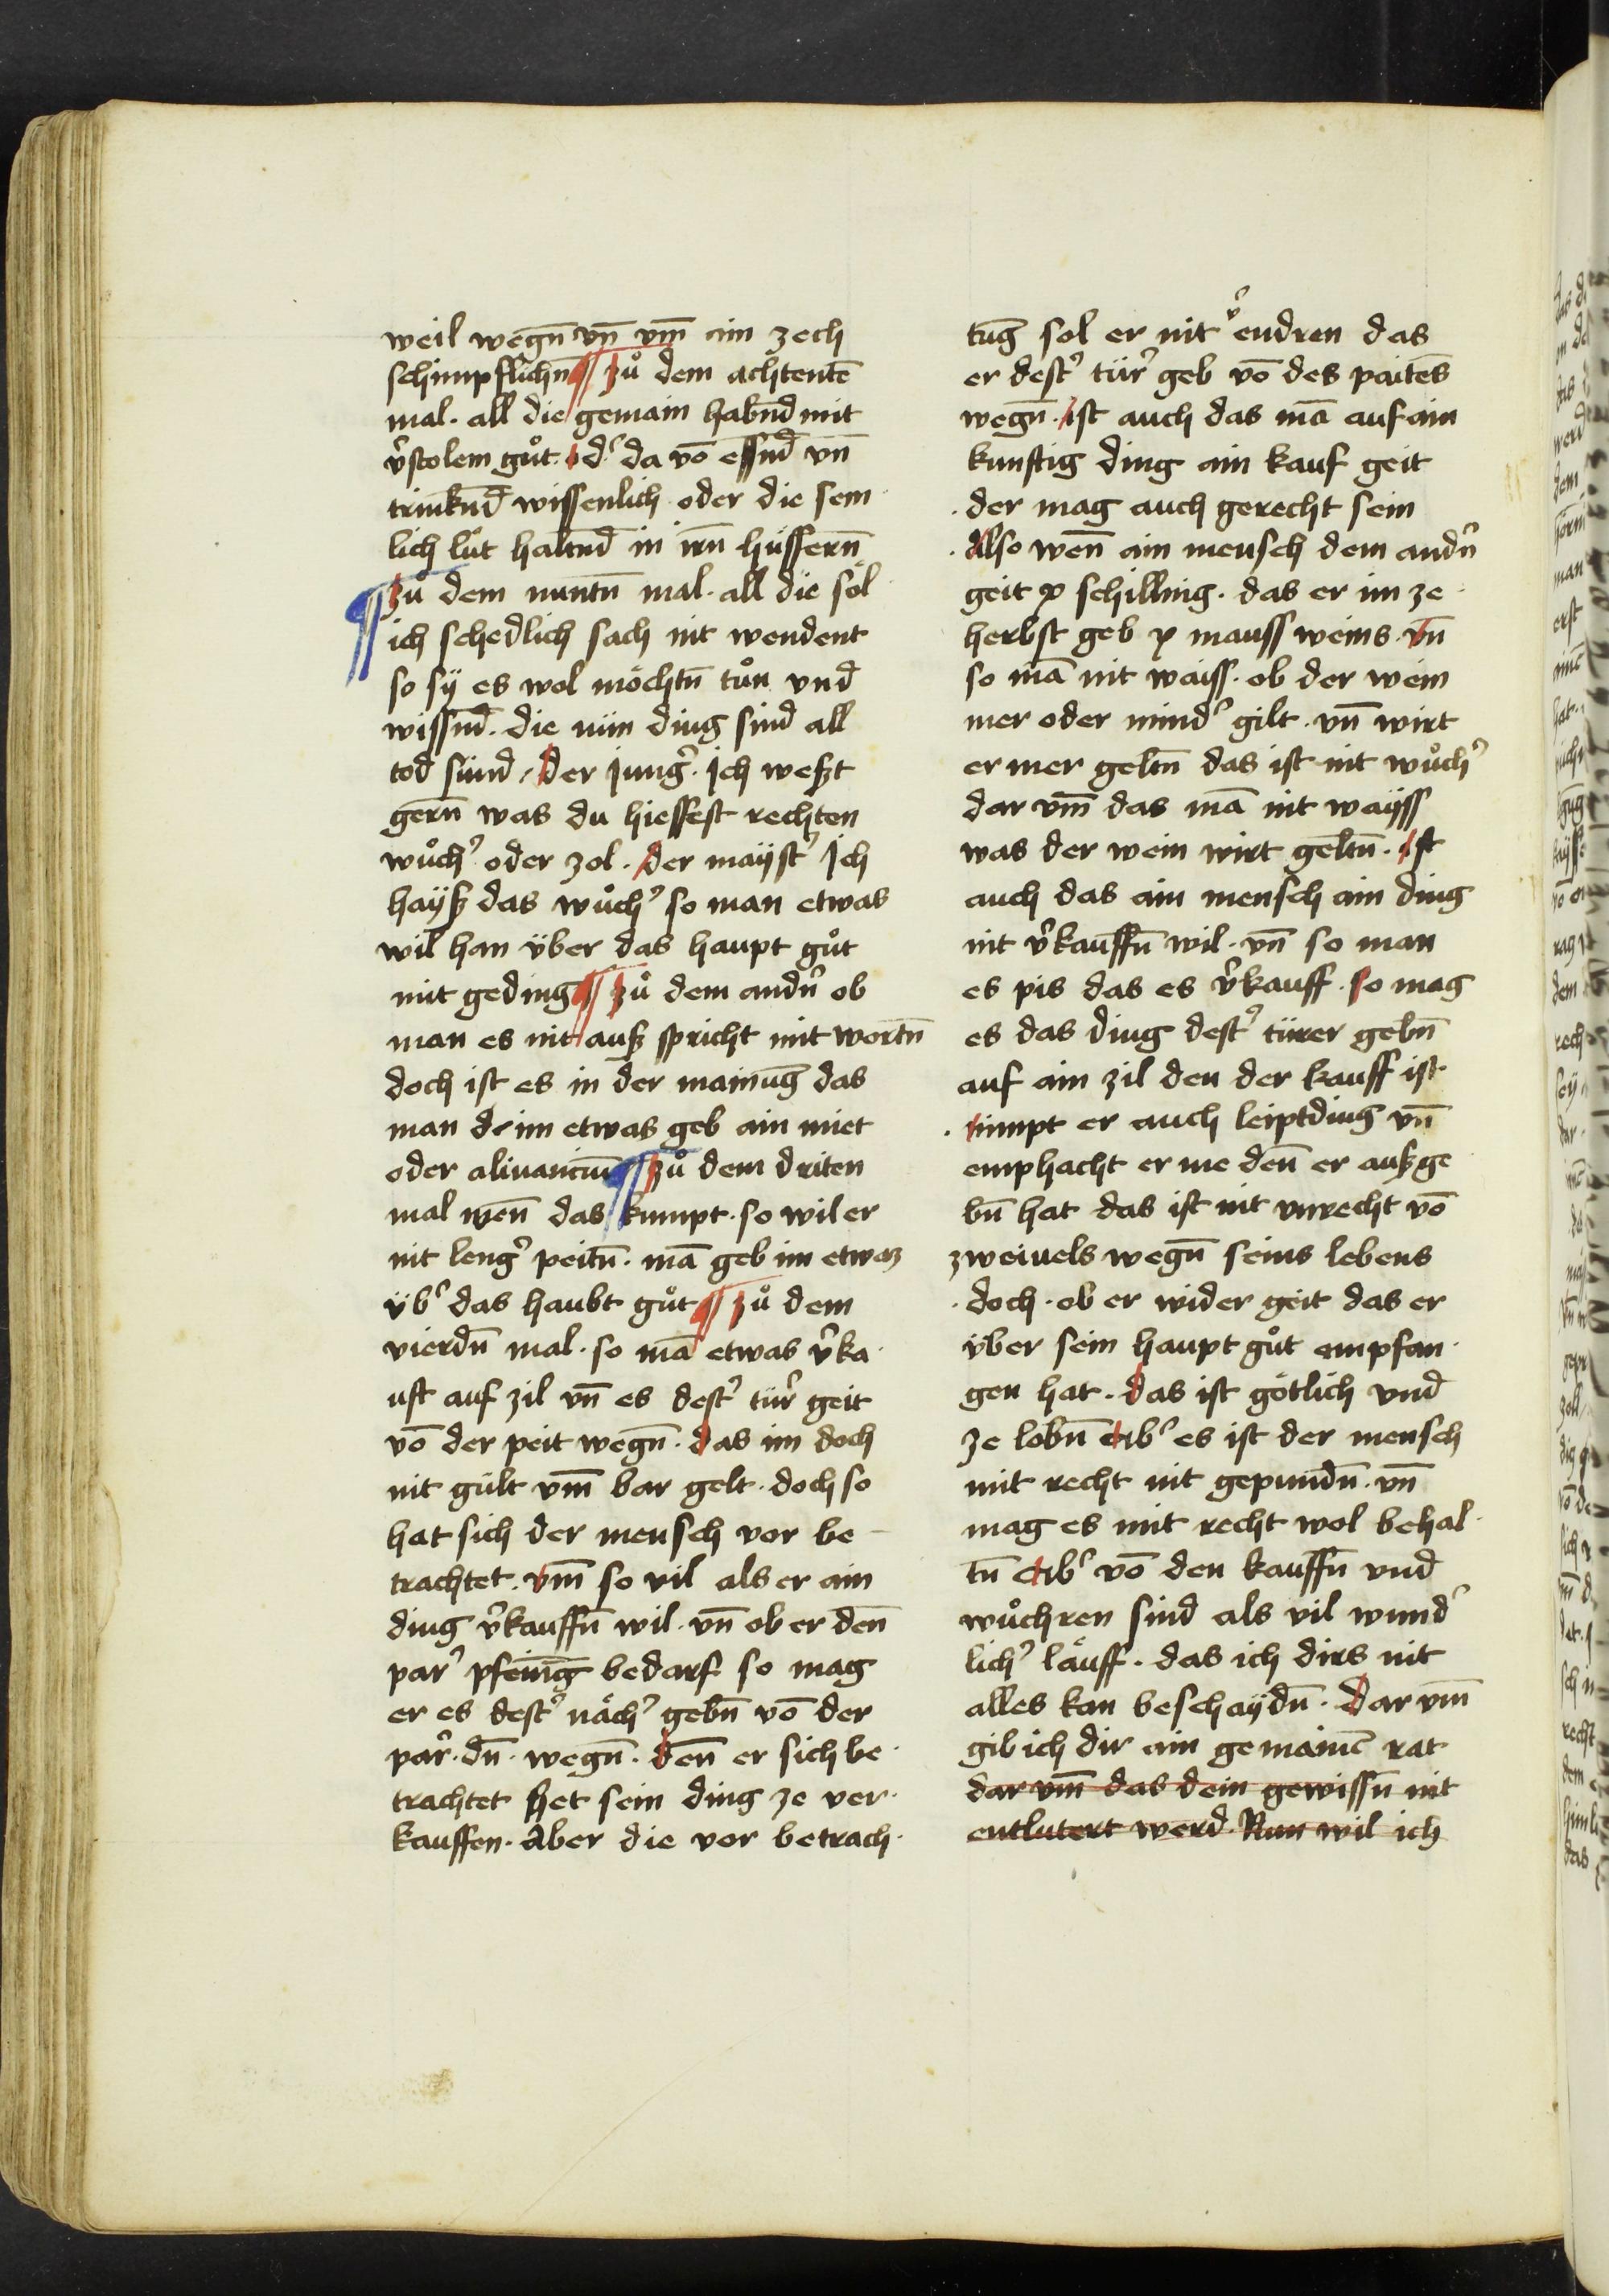 weil wegn̄ vn̄ vm̄ ain zech
schimpflichn̄ ¶ zů dem achtentē
mal · all die gemain habnd̄ mit
v̓stolem gůt · od̓ da vō essnd̄ vn̄
trinknd̄ wissenlich · oder die sem
lich lüt haltnd̄ in irn̄ hüssern̄
¶ zů dem nuntn̄ mal · all die söl
ich schedlich sach nit wendent
so sÿ es wol möchtn̄ tůn vnd̄
wissnd̄ · die nün ding sind all
tod sünd / der Jung̓ · Jch weßt
gern̄ was du hiessest rechten
wůch̓ oder zol · der maÿst̓ Jch
haÿß das wůch̓ so man etwas
wil han über das haupt gůt
mit geding ¶ zů dem andn̓ ob
man es nit auß spricht mit wortn̄
doch ist es in der mainūg das
man im etwas geb ain miet
oder ¶ zů dem driten
mal wen̄ das kumpt · so wil er
nit leng̓ peitn̄ · mā geb im etwaz
üb̓ das haubt gůt ¶ zů dem
vierdn̄ mal · so mā etwas v̓ka
uft auf zil vn̄ es dest̓ tür̓ geit
vō der peit wegn̄ · das im doch
nit gült vm̄ bar gelt · doch so
hat sich der mensch vor be
trachtet · vm̄ so vil als er ain
ding v̓kauffn̄ wil · vn̄ ob er den̄
par̓ pfenīg bedarf so mag
er es dest̓ näch̓ gebn̄ vō der
par̓ · dn̄ · wegn̄ · den̄ er sich be
trachtet het sein ding ze ver
kauffen · Aber die vor betrach
tūg sol er nit v̓endren das
er dest̓ tür̓ geb vō des paitēs
wegn̄ · ist auch das mā auf ain
kunftig ding ain kauf geit
· der mag auch gerecht sein
· Also wen̄ ain mensch dem andn̓
geit x schilling · das er im ze
herbst geb x mauss weins · vn̄
so mā nit waiss · ob der wein
mer oder mind̓ gilt · vn̄ wirt
er mer geltn̄ das ist nit wůch̓
dar vm̄ das mā nit waÿss
was der wein wirt geltn̄ · Jst
auch das ain mensch ain ding
nit v̓kauffn̄ wil · vn̄ so man
es pis das es v̓kauff · so mag
es das ding dest̓ türer gebn̄
auf ain zil den der kauff ist
· nimpt er auch leiptding vn̄
emphacht er me den̄ er außge
bn̄ hat das ist nit vnrecht vō
zweiuels wegn̄ seins lebens
· doch · ob er wider geit das er
über sein haupt gůt empfan
gen hat · das ist götlich vnd̄
ze lobn̄ ab̓ es ist der mensch
mit recht nit gepundn̄ · vn̄
mag es mit recht wol behal
tn̄ ab̓ vō den kauffn̄ vnd̄
wůchren sind als vil wund̓
lich̓ läuff · das ich dirs nit
alles kan beschaÿdn̄ · Dar vm̄
gib ich dir ain gemainē rat
dar vm̄ das dein gewissn̄ nit
entlutert werd · Nun wil ich